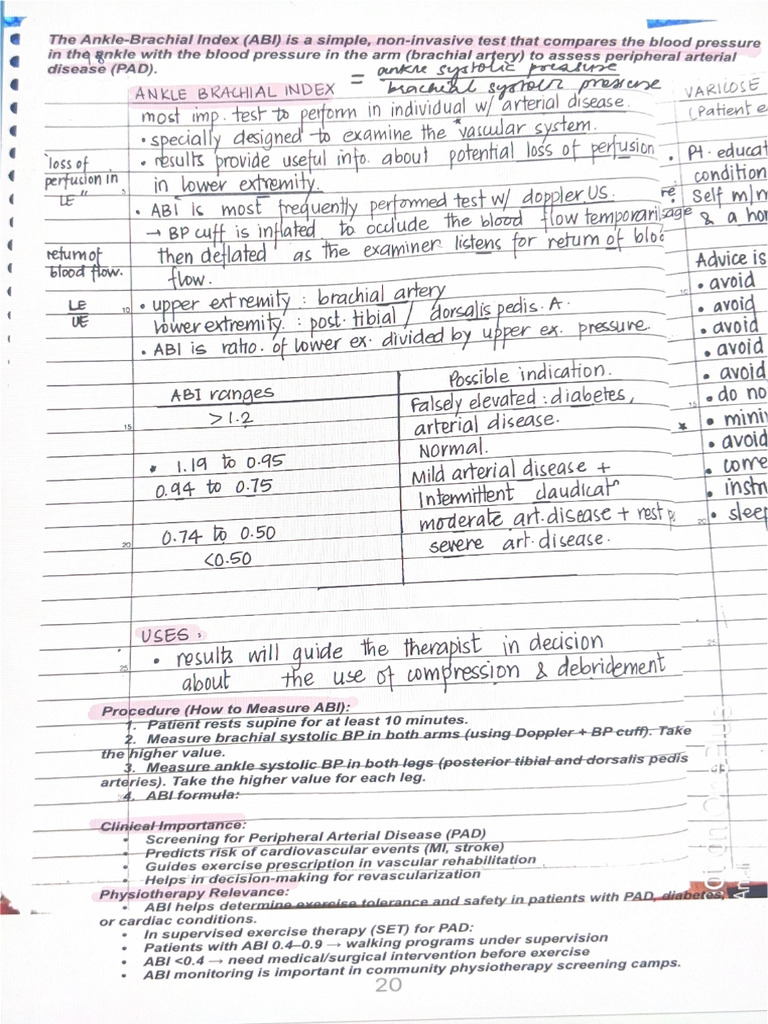 The Ankle-Brachial Index (ABI) is a simple, non-invasive test that compares the blood pressure
in the ankle with the blood pressure in the arm (brachial artery) to assess peripheral arterial
disease (PAD).
= ankle systolic pressure
brachial systolic pressure
ANKLE BRACHIAL INDEX
most imp. test to perform in individual w/ arterial disease.
• specially designed to examine the vascular system.
• results provide useful info. about potential loss of perfusion
in lower extremity.
loss of
perfusion in
LE
• ABI is most frequently performed test w/ doppler US.
→ BP cuff is inflated to occlude the blood flow temporarily
then deflated as the examiner listens for return of bloo
flow.
return of
blood flow.
• upper extremity : brachial artery
Lower extremity. : post. tibial / dorsalis pedis. A.
• ABI is ratio. of lower ex. divided by upper ex. pressure.
LE
UE
ABI ranges
Possible indication.
>1.2
Falsely elevated : diabetes,
arterial disease.
• 1.19 to 0.95
Normal.
0.94 to 0.75
Mild arterial disease +
Intermittent claudicatn
0.74 to 0.50
moderate art. disease + rest p.
<0.50
severe art. disease.
USES :
• results will guide the therapist in decision
about the use of compression & debridement
Procedure (How to Measure ABI):
1. Patient rests supine for at least 10 minutes.
2. Measure brachial systolic BP in both arms (using Doppler + BP cuff). Take
the higher value.
3. Measure ankle systolic BP in both legs (posterior tibial and dorsalis pedis
arteries). Take the higher value for each leg.
4. ABI formula:
Clinical Importance:
• Screening for Peripheral Arterial Disease (PAD)
• Predicts risk of cardiovascular events (MI, stroke)
• Guides exercise prescription in vascular rehabilitation
• Helps in decision-making for revascularization
Physiotherapy Relevance:
• ABI helps determine exercise tolerance and safety in patients with PAD, diabetes,
or cardiac conditions.
• In supervised exercise therapy (SET) for PAD:
• Patients with ABI 0.4–0.9 → walking programs under supervision
• ABI <0.4 → need medical/surgical intervention before exercise
• ABI monitoring is important in community physiotherapy screening camps.
20
VARICOSE
(Patient e
• Pt. educat
condition
Self m/m
& a hor
Advice is
• avoid
• avoid
• avoid
• avoid
• avoid
• do no
• mini
• avoid
• come
• instr
• sleep